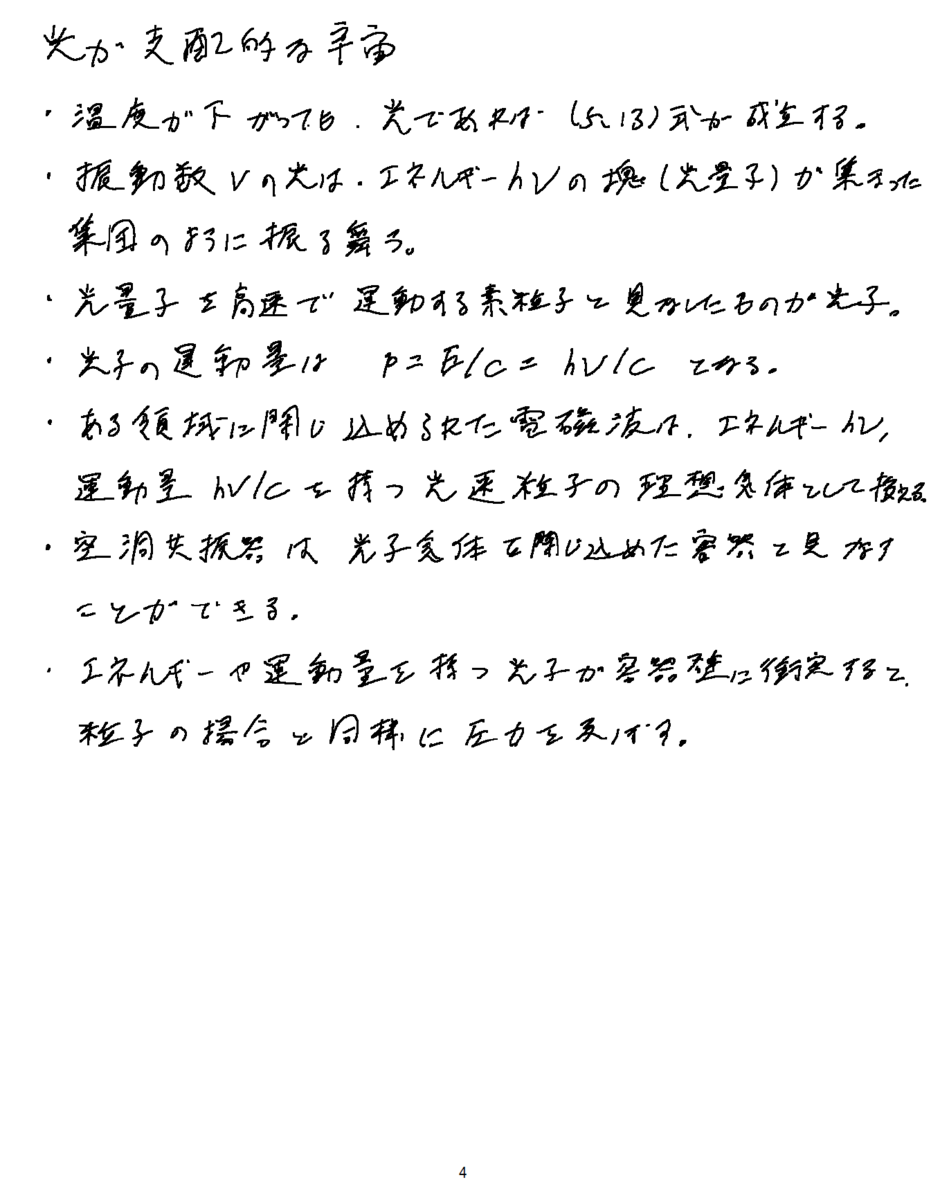 光が支配的な宇宙
・温度が下がっても、光であれば(5.13)式が成立する。
・振動数νの光は、エネルギーhνの塊(光量子)が集まった
集団のように振る舞う。
・光量子を高速で運動する素粒子と見なしたものが光子。
・光子の運動量は p = E/c = hν/c となる。
・ある領域に閉じ込められた電磁波は、エネルギーhν,
運動量 hν/c を持つ光速粒子の理想気体として扱える。
・空洞共振器は光子気体を閉じ込めた容器と見なす
ことができる。
・エネルギーや運動量を持つ光子が容器壁に衝突すると、
粒子の場合と同様に圧力を及ぼす。
4